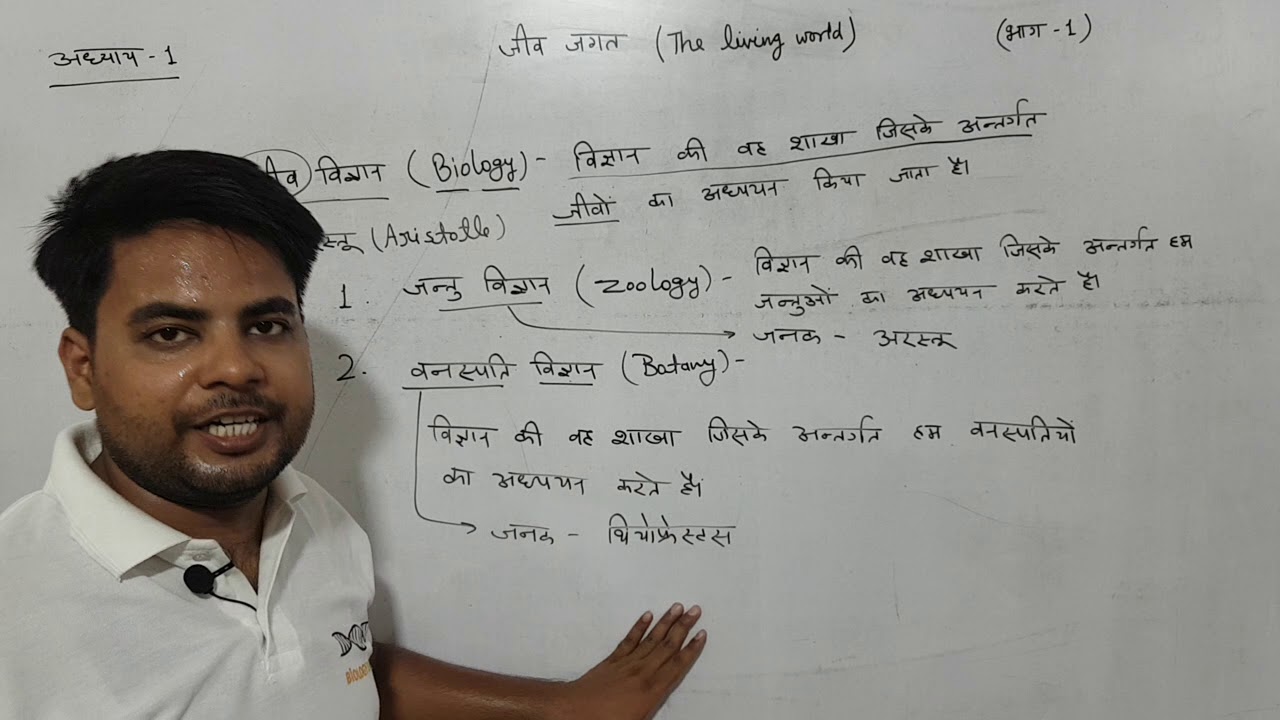 अध्याय - 1
जीव जगत (The living world)
(भाग - 1)
विज्ञान (Biology) - विज्ञान की वह शाखा जिसके अन्तर्गत
जीवों का अध्ययन किया जाता है।
(Aristotle)
1. जन्तु विज्ञान (Zoology) - विज्ञान की वह शाखा जिसके अन्तर्गत हम
जन्तुओं का अध्ययन करते है।
जनक - अरस्तू
2. वनस्पति विज्ञान (Botany) -
विज्ञान की वह शाखा जिसके अन्तर्गत हम वनस्पतियों
का अध्ययन करते है।
जनक - थियोफ्रेस्टस